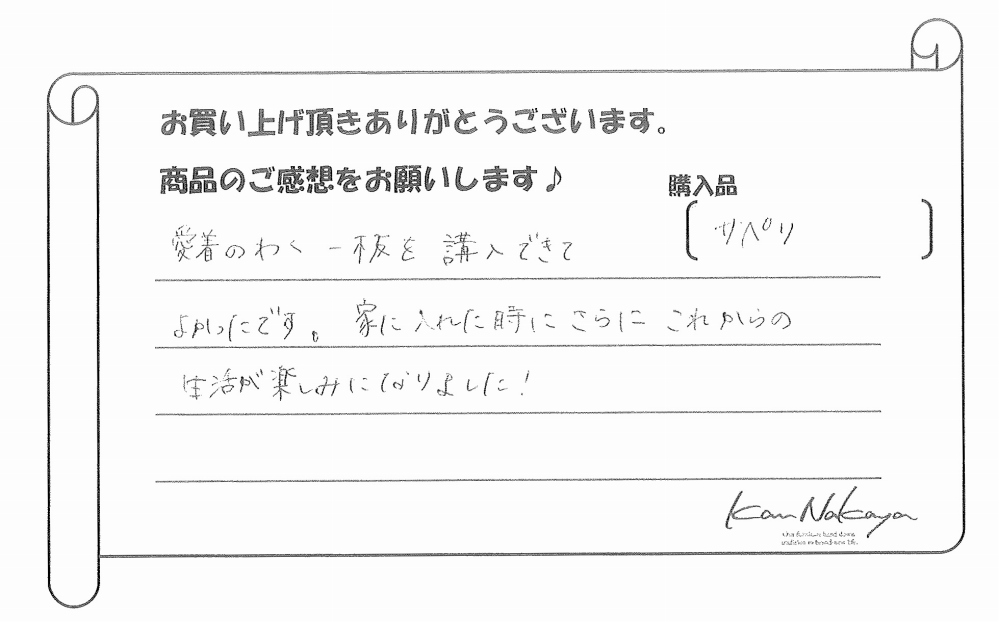 お買い上げ頂きありがとうございます。
商品のご感想をお願いします♪
購入品
サペリ
愛着のわく一枚板を購入できて
よかったです。家に入れた時にさらにこれからの
生活が楽しみになりました!
Kan Nakaya